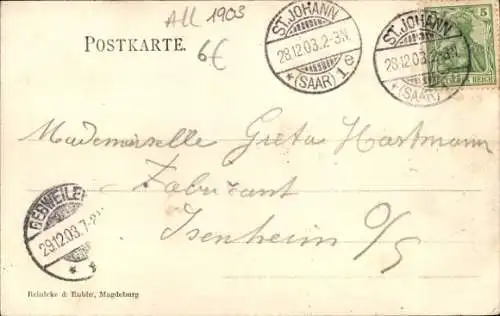 All 1903
6€
POSTKARTE.
ST. JOHANN
28.12.03.2-3N
*(SAAR) 1e
ST. JOHANN
28.12.03.2-3N
*(SAAR)
5
REICH
Mademoiselle Greta Hartmann
Fabricant
Isenheim O/E
GEBWEILER
29.12.03.7-8
Reinicke & Rubin, Magdeburg